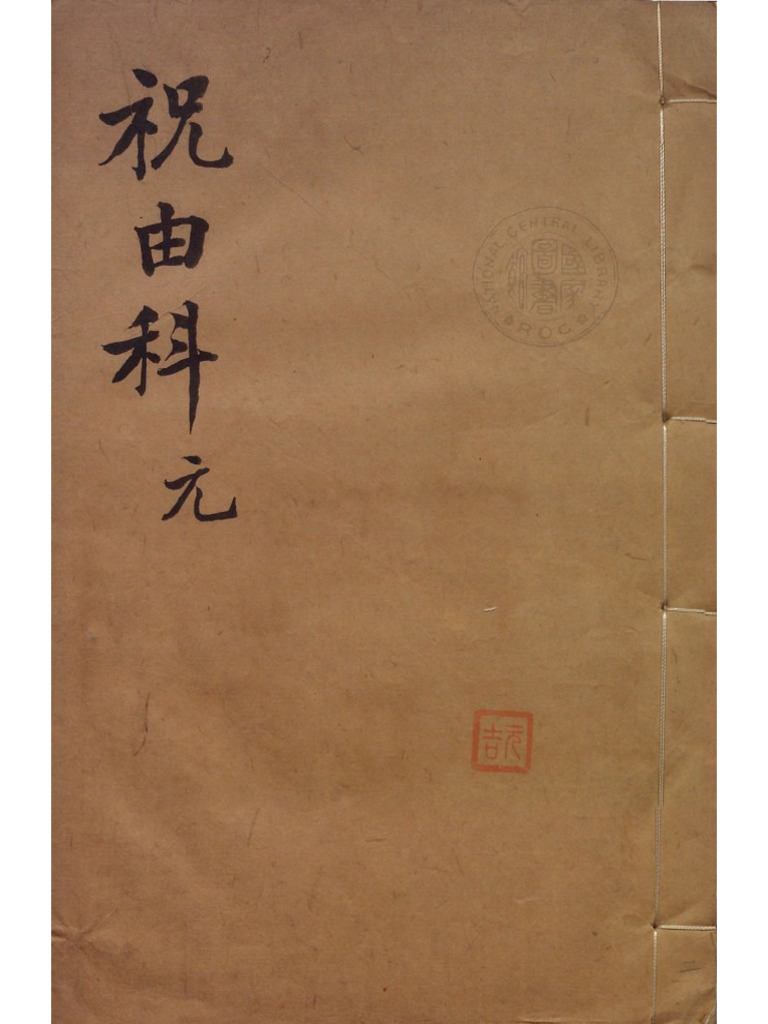 祝由科元
NATIONAL CENTRAL LIBRARY
國家圖書館
R.O.C
元吉